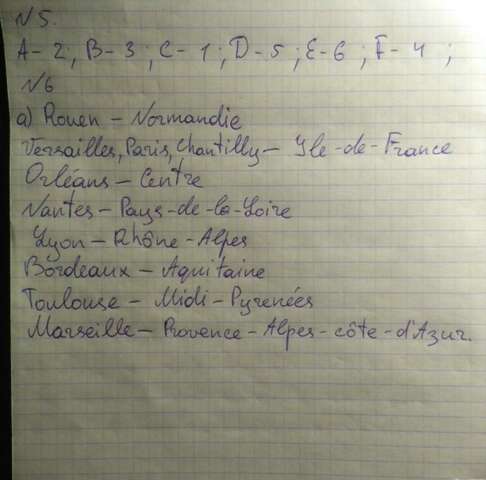 N5.
A-2; B-3; C-1; D-5; E-6; F-4;
N6
a) Rouen - Normandie
Versailles, Paris, Chantilly - Ile-de-France
Orléans - Centre
Nantes - Pays-de-la-Loire
Lyon - Rhône-Alpes
Bordeaux - Aquitaine
Toulouse - Midi-Pyrenées
Marseille - Provence-Alpes-côte-d'Azur.